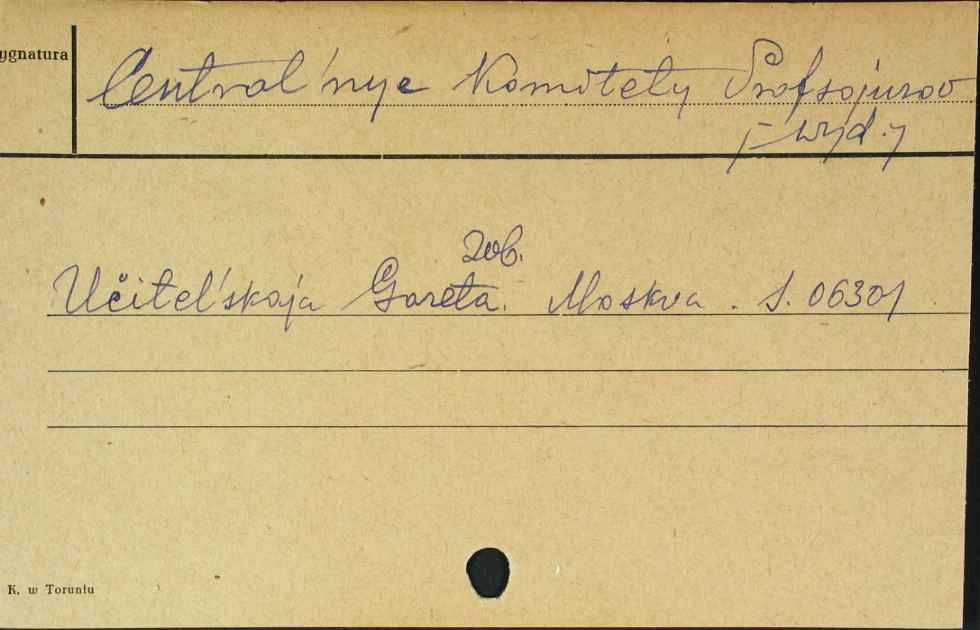 ygnatura
Central'nye Komitety Profsojuzov
/-wyd./
zob.
Učitel'skaja Gazeta. Moskva. S. 06301
K. w Toruniu